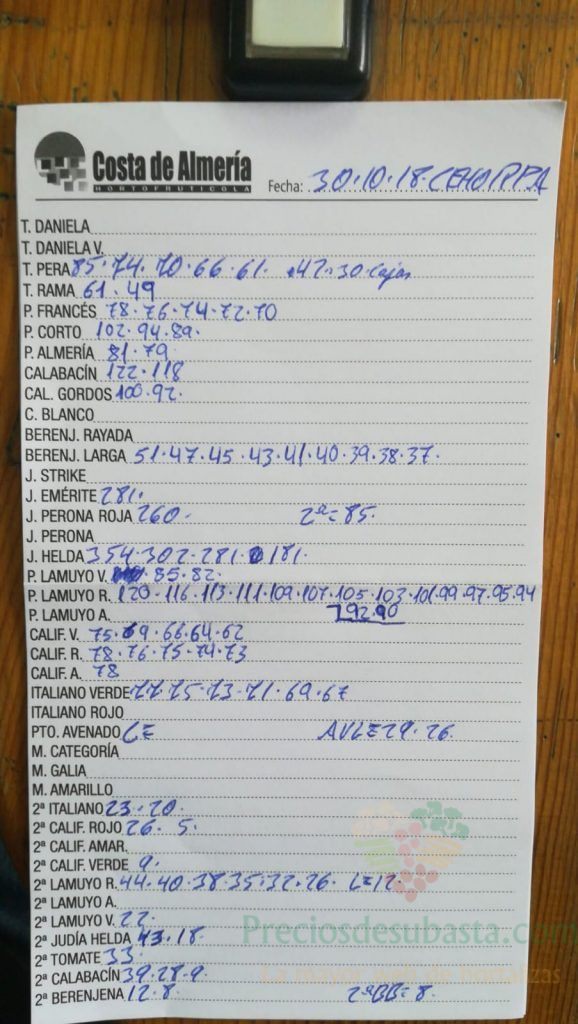 Costa de Almería
HORTOFRUTICOLA
Fecha: 30.10.18. CEHORPA
T. DANIELA
T. DANIELA V.
T. PERA 85.74.70.66.61. .42.30.Cajas
T. RAMA 61.49
P. FRANCÉS 78.76.74.72.70
P. CORTO 102.94.89.
P. ALMERÍA 81.79
CALABACÍN 122.118
CAL. GORDOS 100.92.
C. BLANCO
BERENJ. RAYADA
BERENJ. LARGA 51.47.45.43.41.40.39.38.37.
J. STRIKE
J. EMÉRITE 281.
J. PERONA ROJA 260. 2ª=85.
J. PERONA
J. HELDA 354.302.281.181.
P. LAMUYO V. .85.82.
P. LAMUYO R. 120.116.113.111.109.107.105.103.101.99.97.95.94
P. LAMUYO A. 92.90
CALIF. V. 75.69.66.64.62
CALIF. R. 78.76.75.74.73
CALIF. A. 78
ITALIANO VERDE 77.75.73.71.69.67
ITALIANO ROJO
PTO. AVENADO 29.26.
M. CATEGORÍA
M. GALIA
M. AMARILLO
2ª ITALIANO 23.20.
2ª CALIF. ROJO 26. 5.
2ª CALIF. AMAR.
2ª CALIF. VERDE 9.
2ª LAMUYO R. 44.40.38.35.32.26. L=12.
2ª LAMUYO A.
2ª LAMUYO V. 22.
2ª JUDÍA HELDA 43.18.
2ª TOMATE 33
2ª CALABACÍN 39.28.9.
2ª BERENJENA 12.8. 2ªBB=8.
Preciosdesubasta.c
La mayor web de hortalizas